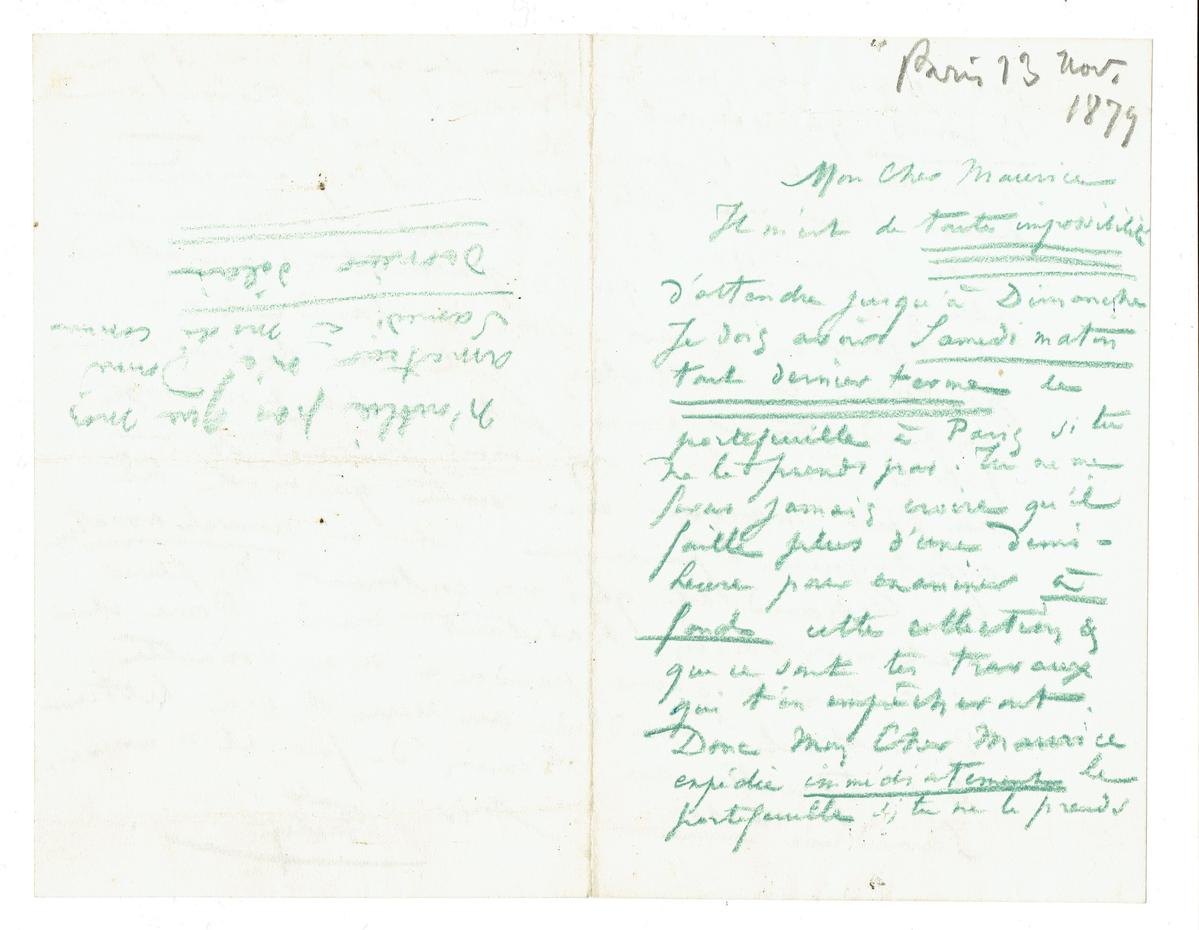 Paris 13 Nov.
1879
Mon Cher Maurice
Il m'est de toute impossibilité
d'attendre jusqu'à Dimanche
Je dois avoir Samedi matin
tout dernier terme le
portefeuille à Paris si tu
ne le prends pas. Tu ne me
feras jamais croire qu'il
faille plus d'une demi-
heure pour examiner à
fond cette collection &
que ce sont tes travaux
qui t'en empêcheront.
Donc Mon Cher Maurice
expédie immédiatement le
portefeuille si tu ne le prends
N'oublie pas que mon
n'a donné
Samedi à midi comme
Dernier délai